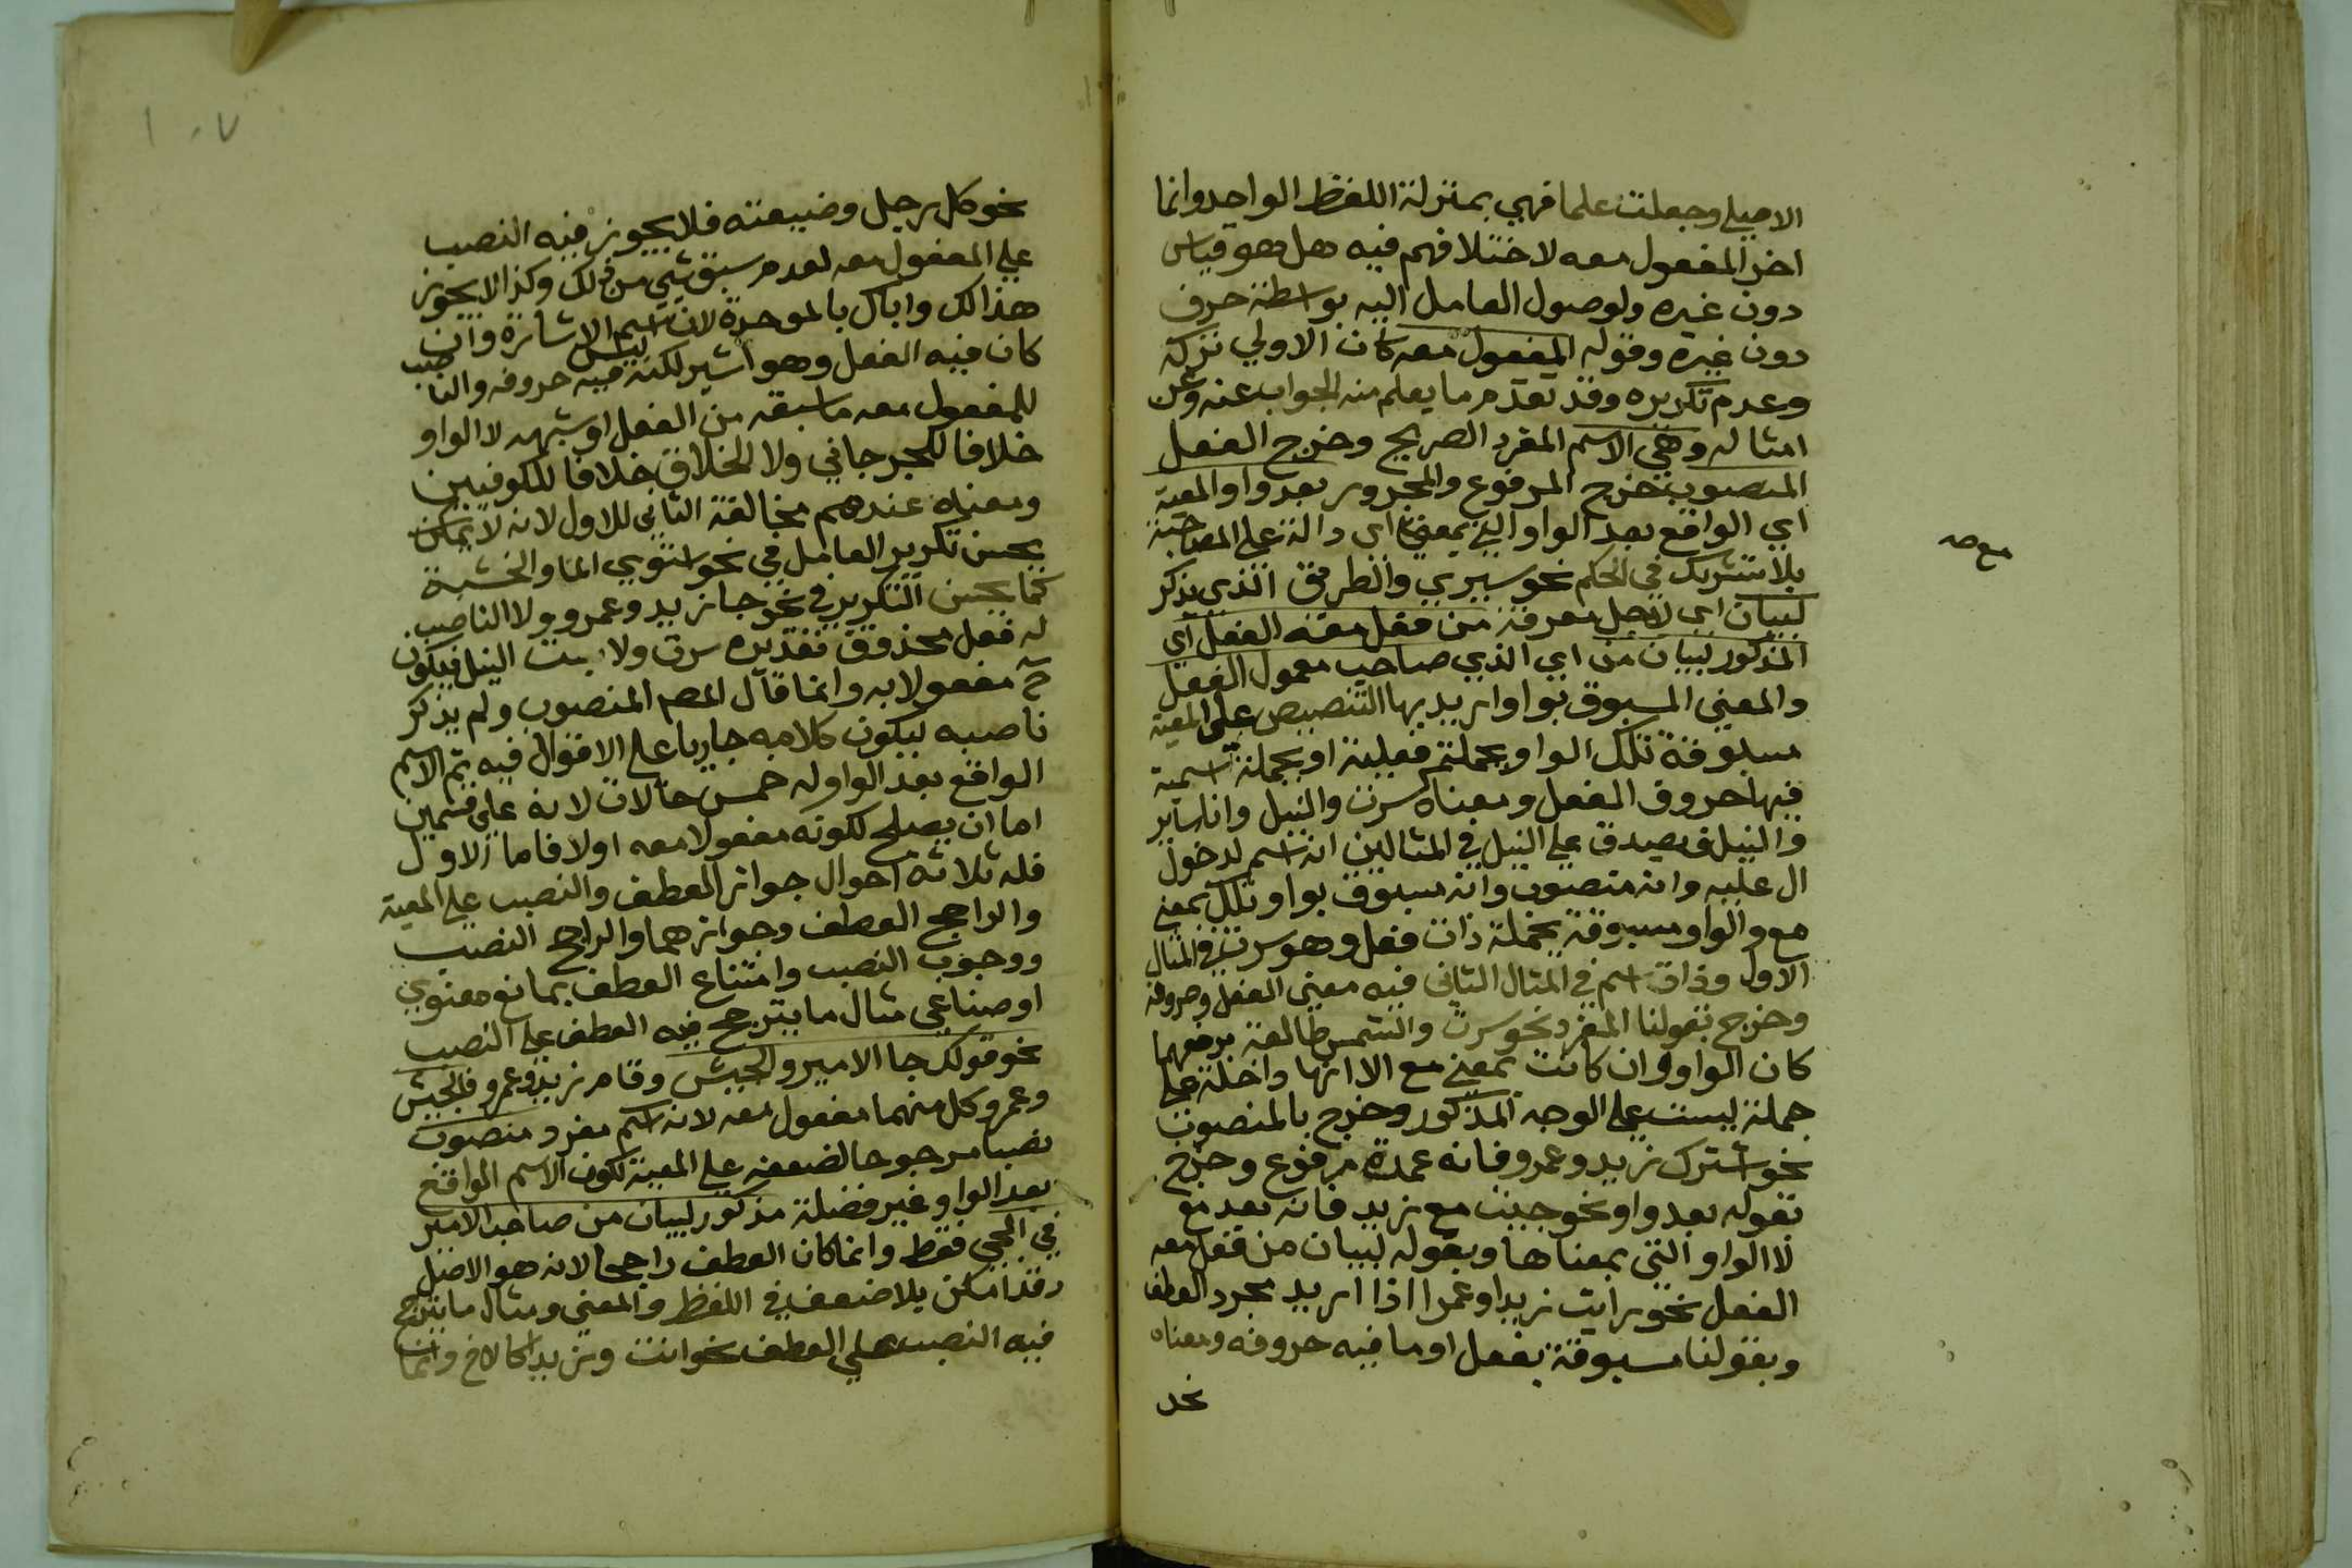 الاصلي وجعلت علما فهي بمنزلة اللفظ الواحد وانما
اخر المفعول معه لاختلافهم فيه هل هو قياس
دون غيره ولوصول العامل اليه بواسطة حرف
دون غيره وقوله المفعول معه كان الاولي تركه
وعدم تكريره وقد تقدم ما يعلم منه الجواب عنه وعن
امثاله وهي الاسم المفرد الصريح وخرج الفعل
المنصوب خرج المرفوع والمجرور بعد واو المعية
اي الواقع بعد الواو التي بمعني اي دالة علي المصاحبة
مع صح
بلا تشريك في الحكم نحو سيري والطريق الذي يذكر
لبيان اي لاجل معرفة من فعل معه الفعل اي
المذكور لبيان من اي الذي صاحب معمول الفعل
والمعني المسبوق بواو اريد بها التنصيص علي المعية
مسبوقة تلك الواو بجملة فعلية او بجملة اسمية
فيها حروف الفعل ومعناه كسرت والنيل وانا ساير
والنيل فيصدق علي النيل في المثالين انه اسم لدخول
ال عليه وانه منصوب وانه مسبوق بواو تلك بمعني
مع والواو مسبوقة بجملة ذات فعل وهو سرت في المثال
الاول وذات اسم في المثال الثاني فيه معني الفعل وحروفه
وخرج بقولنا المفرد نحو سرت والشمس طالعة برفعهما
كان الواو وان كانت بمعني مع الا انها داخلة علي
جملة ليست علي الوجه المذكور وخرج بالمنصوب
نحو اشترك زيد وعمرو فانه عمدة مرفوع وخرج
بقوله بعد واو نحو جيت مع زيد فانه بعد مع
لا الواو التي بمعناها وبقوله لبيان من فعل معه
الفعل نحو رايت زيدا وعمرا اذا اريد مجرد العطف
وبقولنا مسبوقة بفعل او ما فيه حروفه ومعناه
نحو
١٠٧
نحو كل رجل وضيعته فلا يجوز فيه النصب
علي المفعول معه لعدم سبق شي من ذلك وكذا لا يجوز
هذا لك واباك بالموحدة لان اسم الاشارة وان
كان فيه الفعل وهو اشير لكنه ليس فيه حروفه والناصب
للمفعول معه ما سبقه من الفعل او شبهه لا الواو
خلافا للجرجاني ولا الخلاف خلافا للكوفيين
ومعناه عندهم مخالفة الثاني للاول لانه لا يمكن
يحسن تكرير العامل في نحو استوي الما والخشبة
كما يحسن التكرير في نحو جا زيد وعمرو ولا الناصب
له فعل محذوف تقديره سرت ولابست النيل فيكون
ح مفعولا به وانما قال المص المنصوب ولم يذكر
ناصبه ليكون كلامه جاريا علي الاقوال فيه ثم الاسم
الواقع بعد الواو له خمس حالات لانه علي قسمين
اما ان يصلح لكونه مفعولا معه اولا فاما الاول
فله ثلاثة احوال جواز العطف والنصب علي المعية
والراجح العطف وجوازهما والراجح النصب
ووجوب النصب وامتناع العطف بمانع معنوي
او صناعي مثال ما يترجح فيه العطف علي النصب
نحو قولك جا الامير والجيش وقام زيد وعمرو فالجيش
وعمرو كل منهما مفعول معه لانه اسم مفرد منصوب
نصبا مرجوحا لضعفه علي المعية لكون الاسم الواقع
بعد الواو غير فضلة مذكور لبيان من صاحب الامير
في المجي فقط وانما كان العطف راجحا لانه هو الاصل
وقد امكن بلا ضعف في اللفظ والمعني ومثال ما يترجح
فيه النصب علي العطف نحو انت وزيدا كالاخ وانما